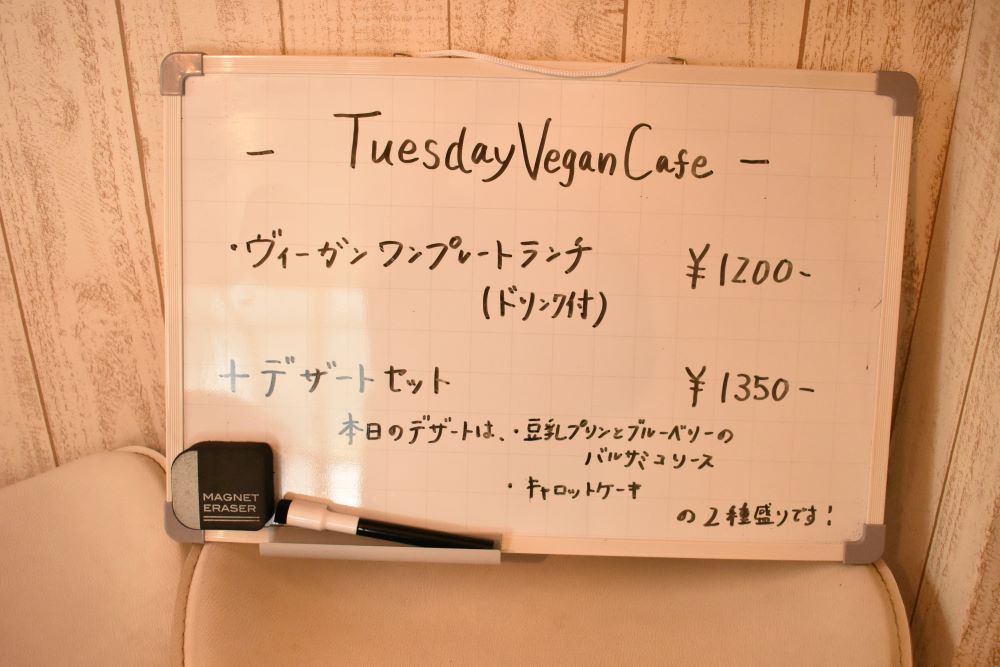 - Tuesday Vegan Cafe -
・ヴィーガン ワンプレートランチ ¥1200-
(ドリンク付)
+デザートセット ¥1350-
本日のデザートは、・豆乳プリンとブルーベリーの
バルサミコソース
・キャロットケーキ
の2種盛りです!
MAGNET
ERASER